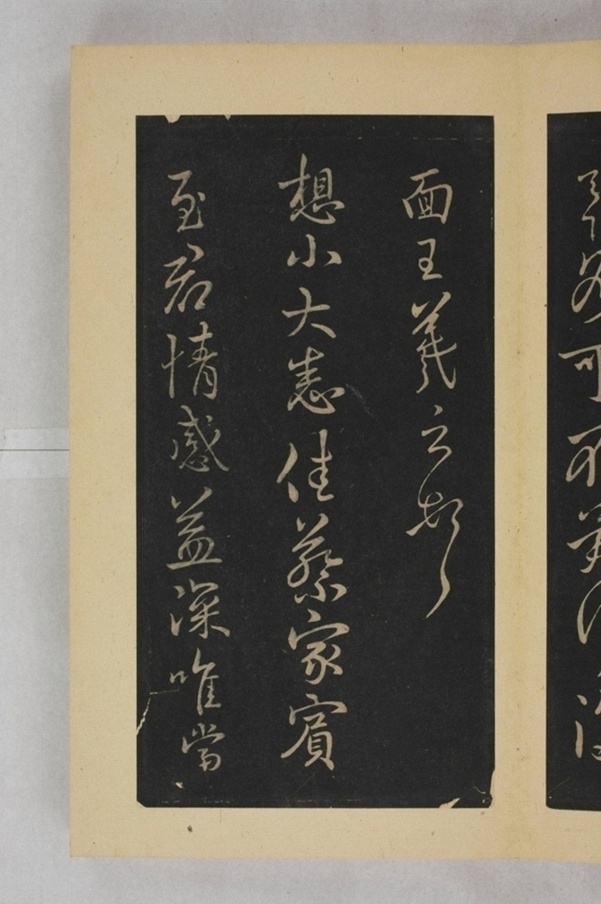 面王羲之頓首
想小大悉佳蔡家賓
至君情感益深唯當